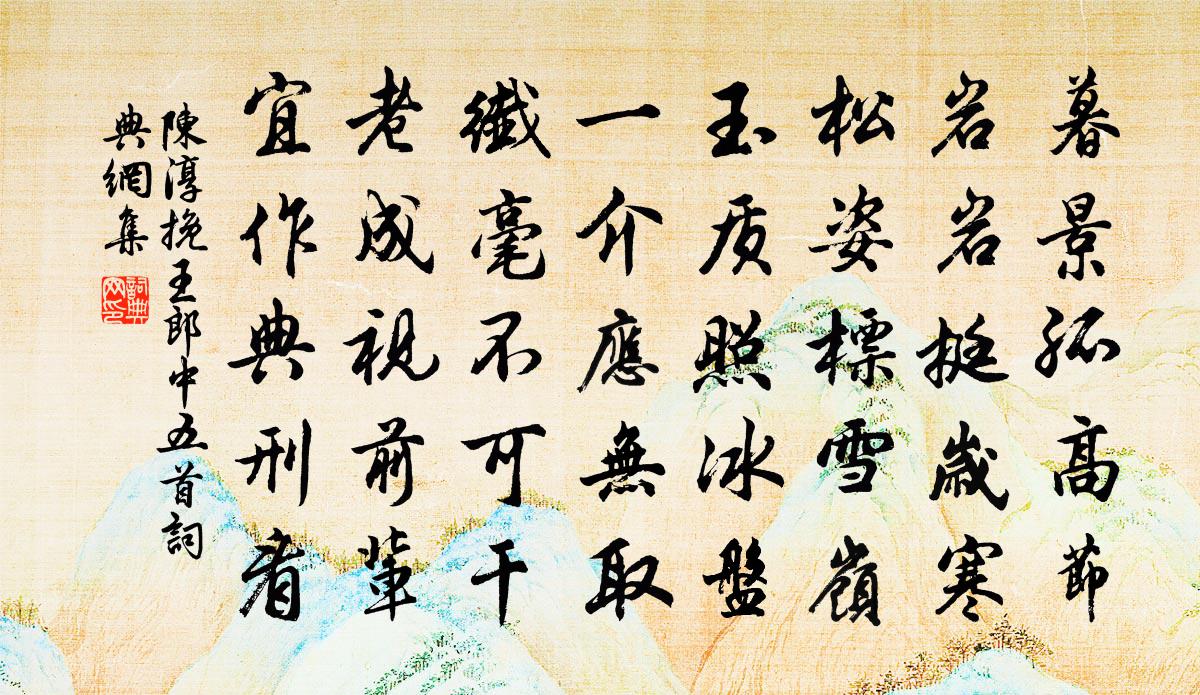 暮景孤高節
岩岩挺歲寒
松姿標雪嶺
玉质照冰盤
一介應無取
纖毫不可干
老成視前輩
宜作典刑看
陳淳挽王郎中五首詞
典網集
詞典网印